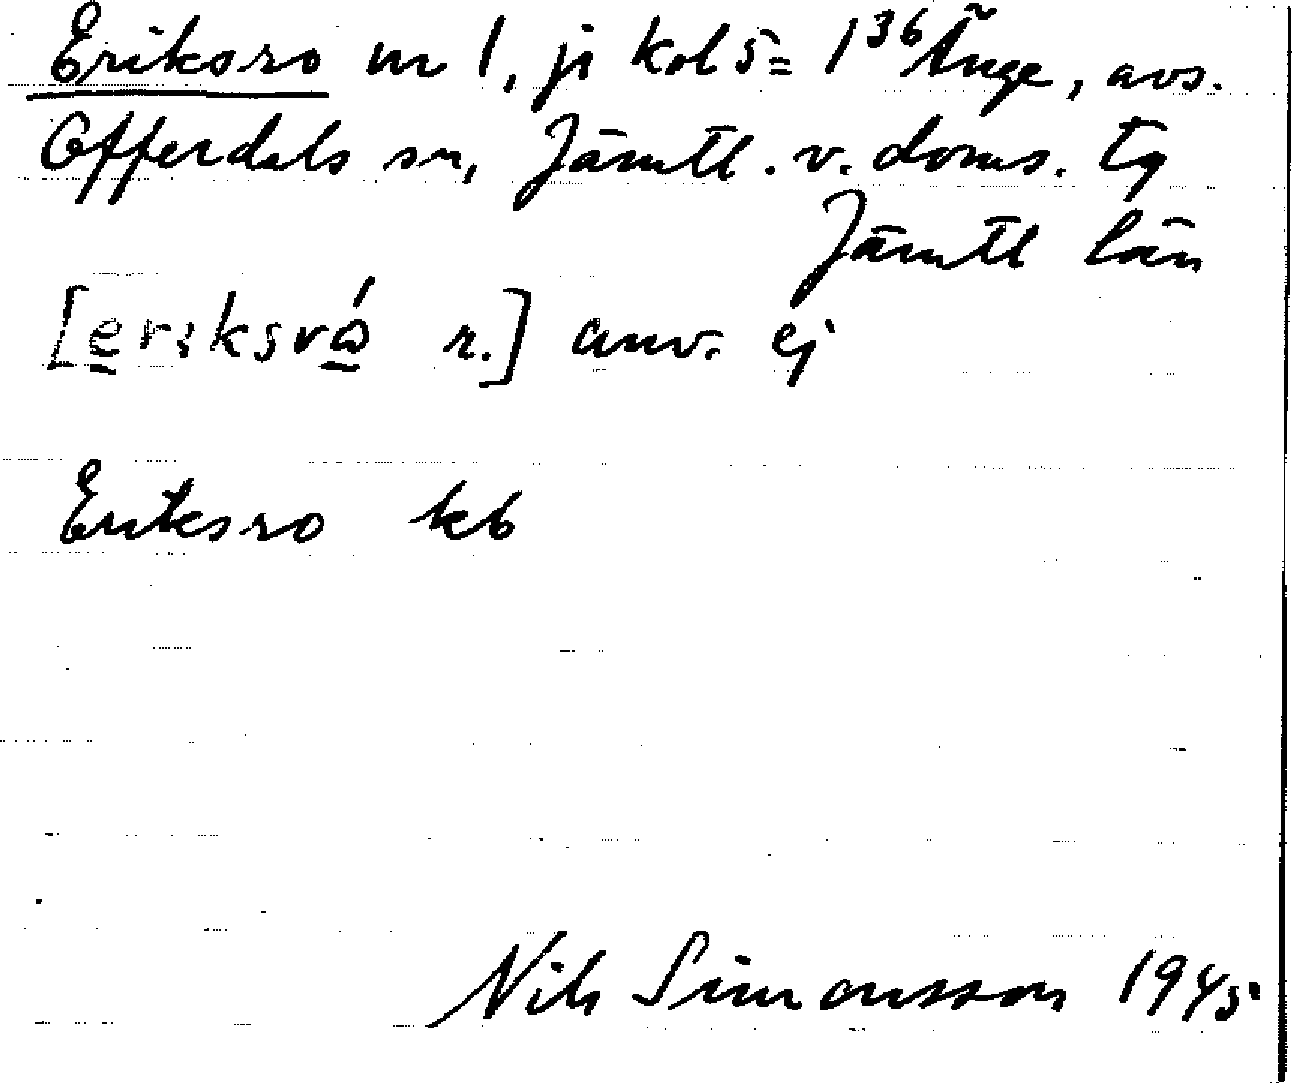 Eriksro nr 1, ji kol 5 = 1³⁶ Änge, avs.
Offerdals sn, Jämtl. v. doms. tg
Jämtl län
[eriksró r.] anv. ej
Eriksro kb
Nils Simonsson 1945